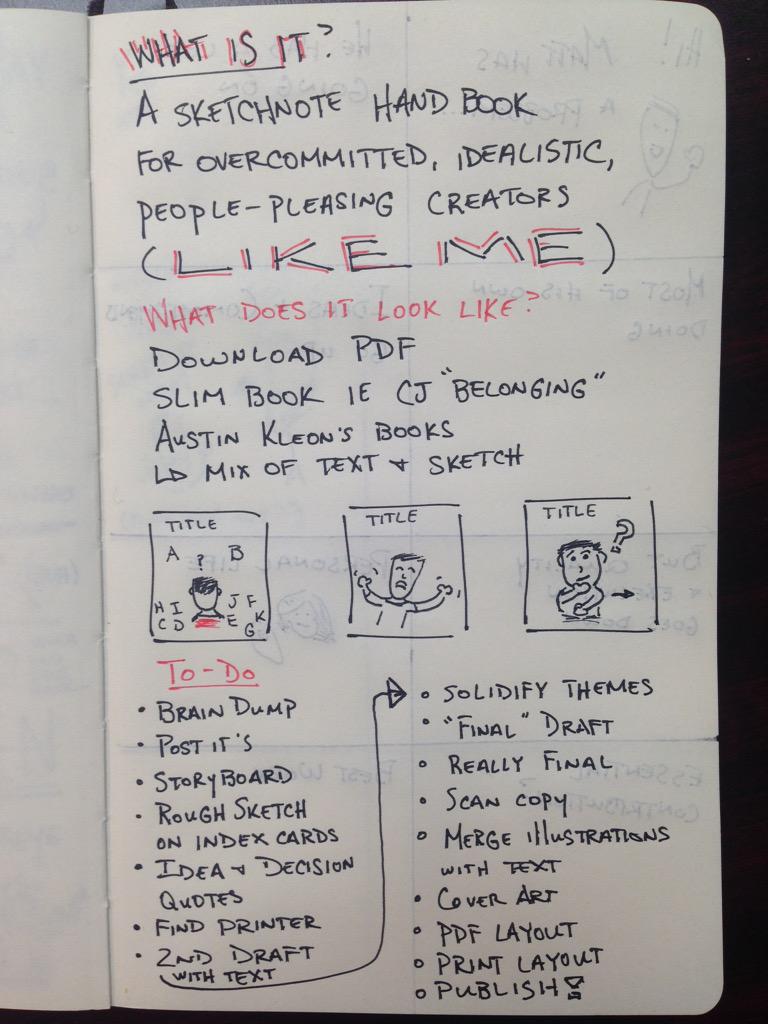 WHAT IS IT?
A SKETCHNOTE HAND BOOK
FOR OVERCOMMITTED, IDEALISTIC,
PEOPLE-PLEASING CREATORS
(LIKE ME)
WHAT DOES IT LOOK LIKE?
DOWNLOAD PDF
SLIM BOOK IE CJ "BELONGING"
AUSTIN KLEON'S BOOKS
↳ MIX OF TEXT + SKETCH
TITLE
A ? B
H I J F
C D E G K
TITLE
TITLE
?
TO-DO
• BRAIN DUMP
• POST IT'S
• STORYBOARD
• ROUGH SKETCH
ON INDEX CARDS
• IDEA + DECISION
QUOTES
• FIND PRINTER
• 2ND DRAFT
WITH TEXT
• SOLIDIFY THEMES
• "FINAL" DRAFT
• REALLY FINAL
• SCAN COPY
• MERGE ILLUSTRATIONS
WITH TEXT
• COVER ART
• PDF LAYOUT
• PRINT LAYOUT
• PUBLISH!